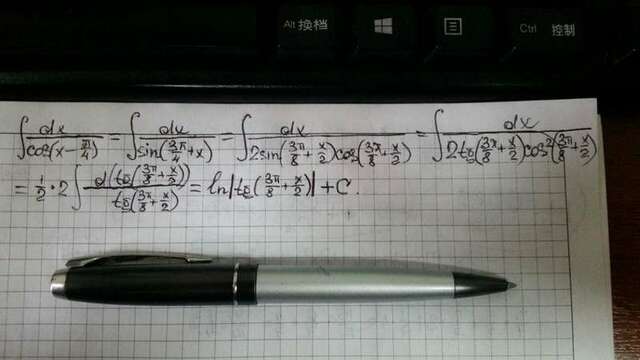 Alt 换档 Ctrl 控制
∫ dx / cos(x − π/4) = ∫ dx / sin(3π/4 + x) = ∫ dx / 2sin(3π/8 + x/2)cos(3π/8 + x/2) = ∫ dx / 2tg(3π/8 + x/2)cos²(3π/8 + x/2)
= 1/2 · 2 ∫ d(tg(3π/8 + x/2)) / tg(3π/8 + x/2) = ln|tg(3π/8 + x/2)| + C.